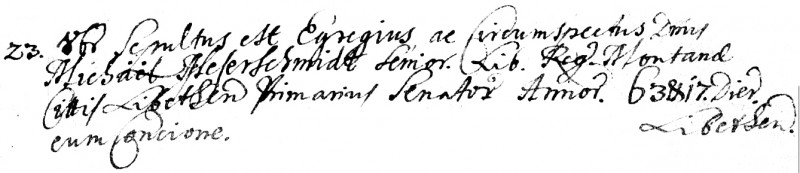 23. 8br Sepultus est Egregius ac Circumspectus Dnus
Michael Meserschmidt Senior. Lib. Reg. Montanae
Cittis Libethen Primarius Senator Annor. 63 & 17. Dier.
cum Concione. Libethen.